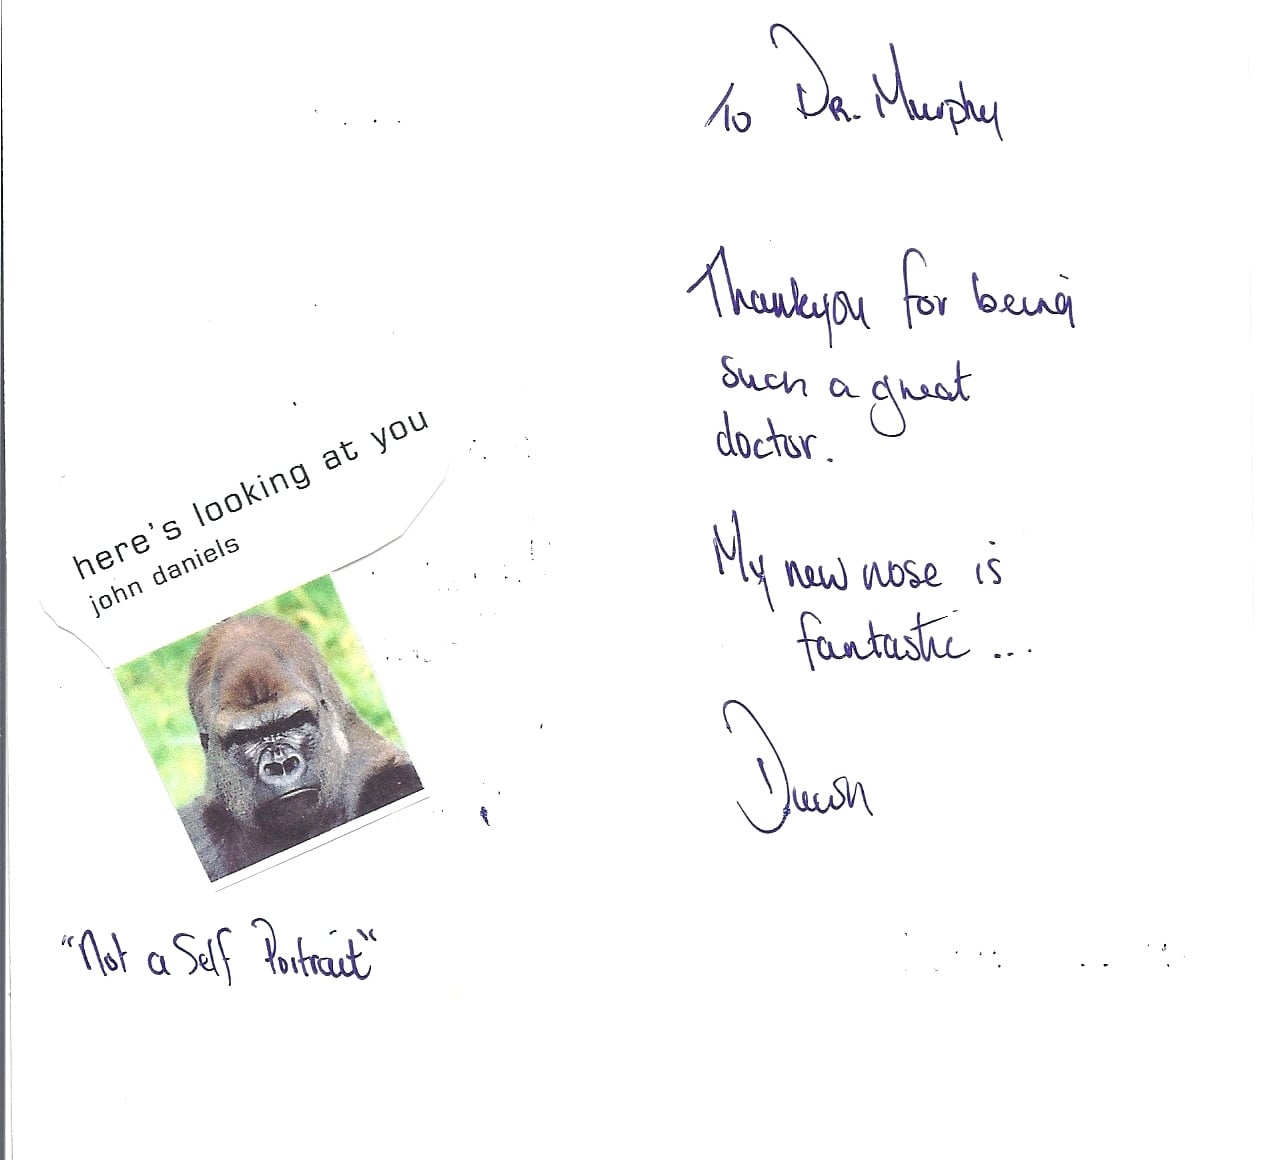 To DR. Murphy
Thankyou for being
such a great
doctor.
My new nose is
fantastic ...
Dawn
here's looking at you
john daniels
"Not a Self Portrait"